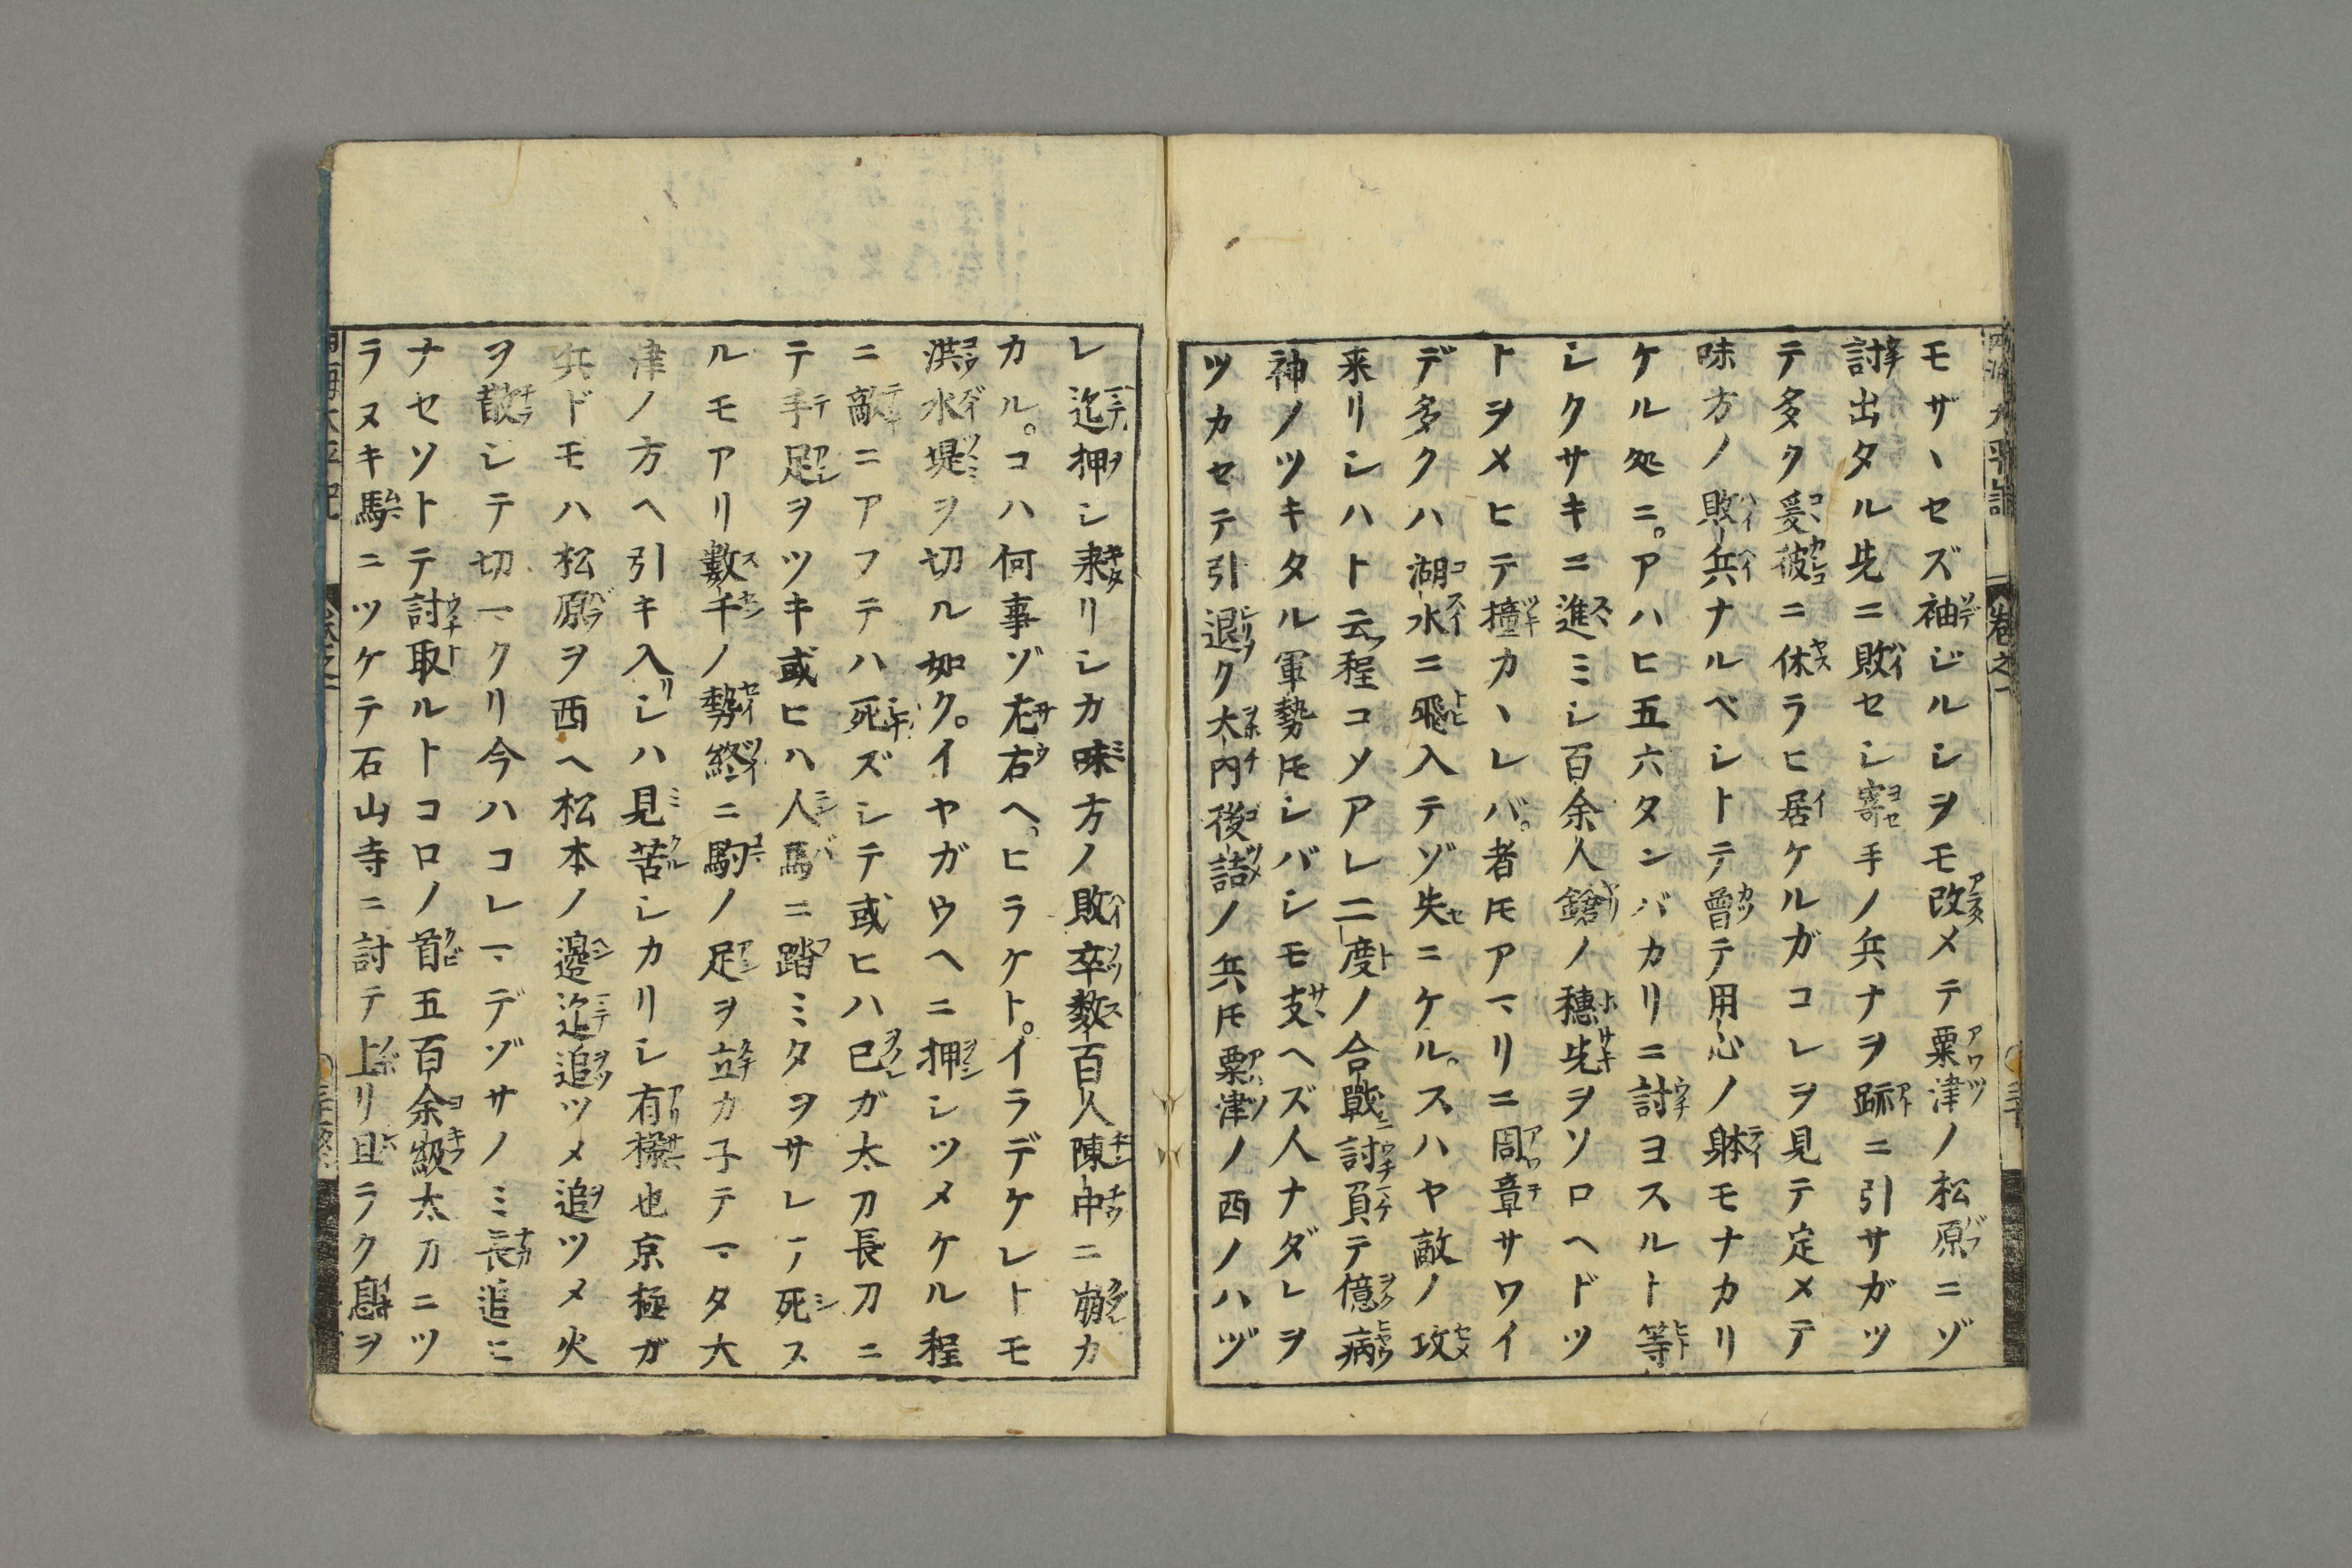 モザヽセズ袖ジルシヲモ改メテ粟津ノ松原ニゾ
討出タル先ニ敗セシ寄手ノ兵ナヲ跡ニ引サガツ
テ多ク爰彼ニ休ラヒ居ケルガコレヲ見テ定メテ
味方ノ敗兵ナルベシトテ曾テ用心ノ躰モナカリ
ケル処ニ。アハヒ五六タンバカリニ討ヨスルト等
シクサキニ進ミシ百余人鎗ノ穗先ヲソロヘドツ
トヲメヒテ撞カヽレバ。者𪜈アマリニ周章サワイ
デ多クハ湖水ニ飛入テゾ失ニケル。スハヤ敵ノ攻
来リシハト云程コソアレ二度ノ合戰討負テ億病
神ノツキタル軍勢𪜈シバシモ支ヘズ人ナダレヲ
ツカセテ引退ク大内後詰ノ兵𪜈粟津ノ西ノハヅ
レ迄押シ来リシカ味方ノ敗卒数百人陳中ニ崩カ
カル。コハ何事ゾ左右ヘ。ヒラケト。イラデケレトモ
洪水堤ヲ切ル如ク。イヤガウヘニ押シツメケル程
ニ敵ニアフテハ死ズシテ或ヒハ已ガ太刀長刀ニ
テ手足ヲツキ或ヒハ人馬ニ踏ミタヲサレテ死ス
ルモアリ數千ノ勢終ニ駒ノ足ヲ立カ子テマタ大
津ノ方ヘ引キ入シハ見苦シカリシ有樣也京極ガ
兵ドモハ松原ヲ西ヘ松本ノ邊迄追ツメ追ツメ火
ヲ散シテ切マクリ今ハコレマデゾサノミ長追ヒ
ナセソトテ討取ルトコロノ首五百余級太刀ニツ
ラヌキ駘ニツケテ石山寺ニ討テ上リ且ラク息ヲ